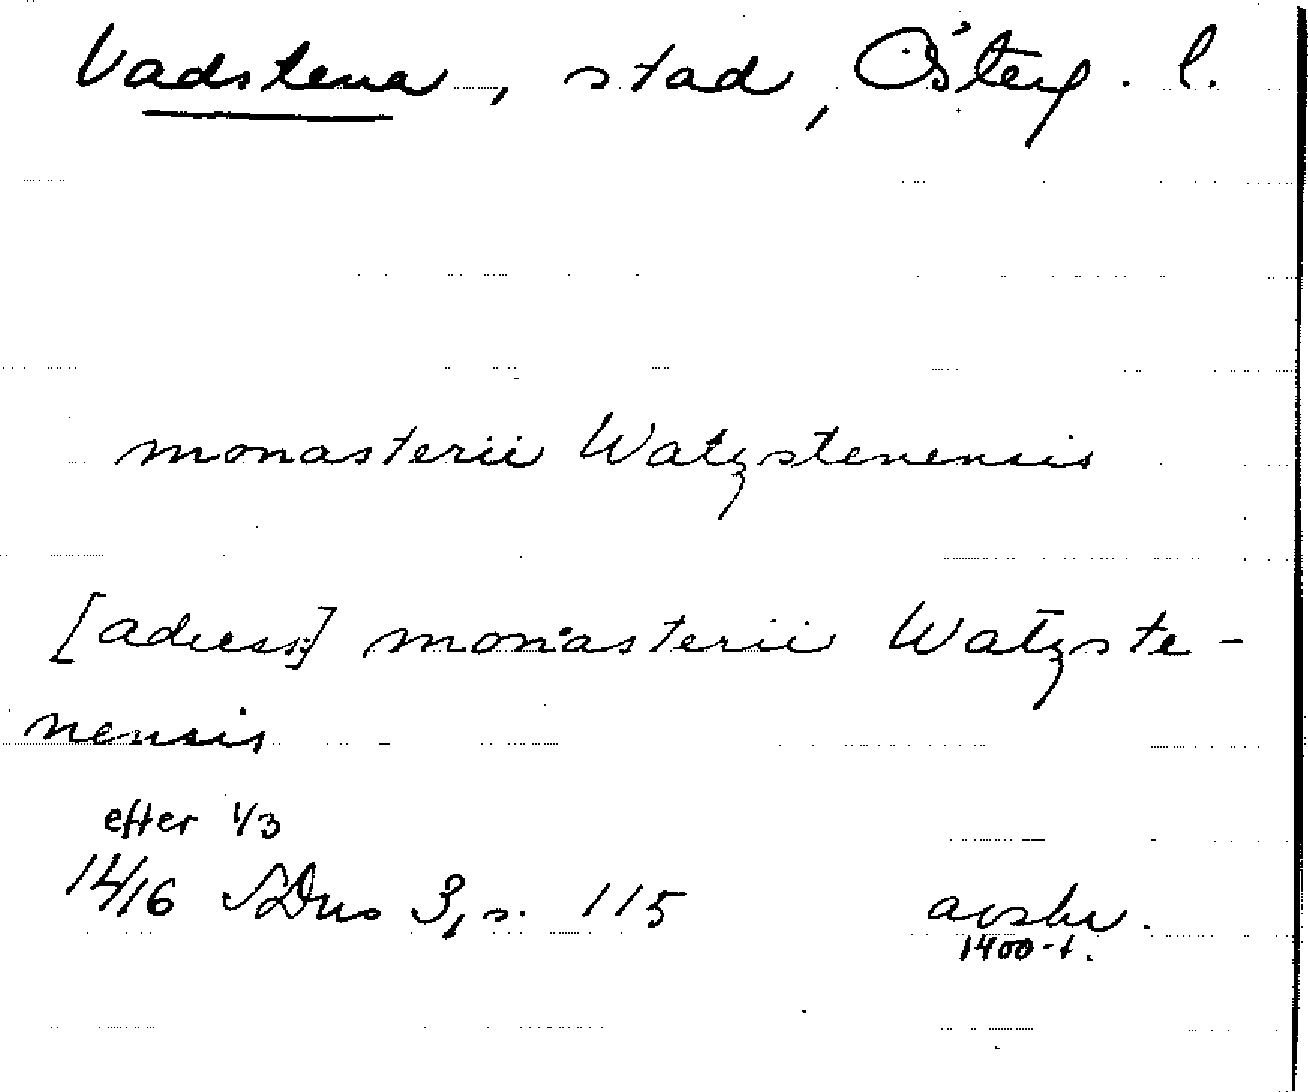 Vadstena, stad, Österg. l.
monasterii Watzstenensis
[adress] monasterii Watzste-
nensis
efter 1/3
14/16 SDns 3, s. 115 avskr.
1400-t.